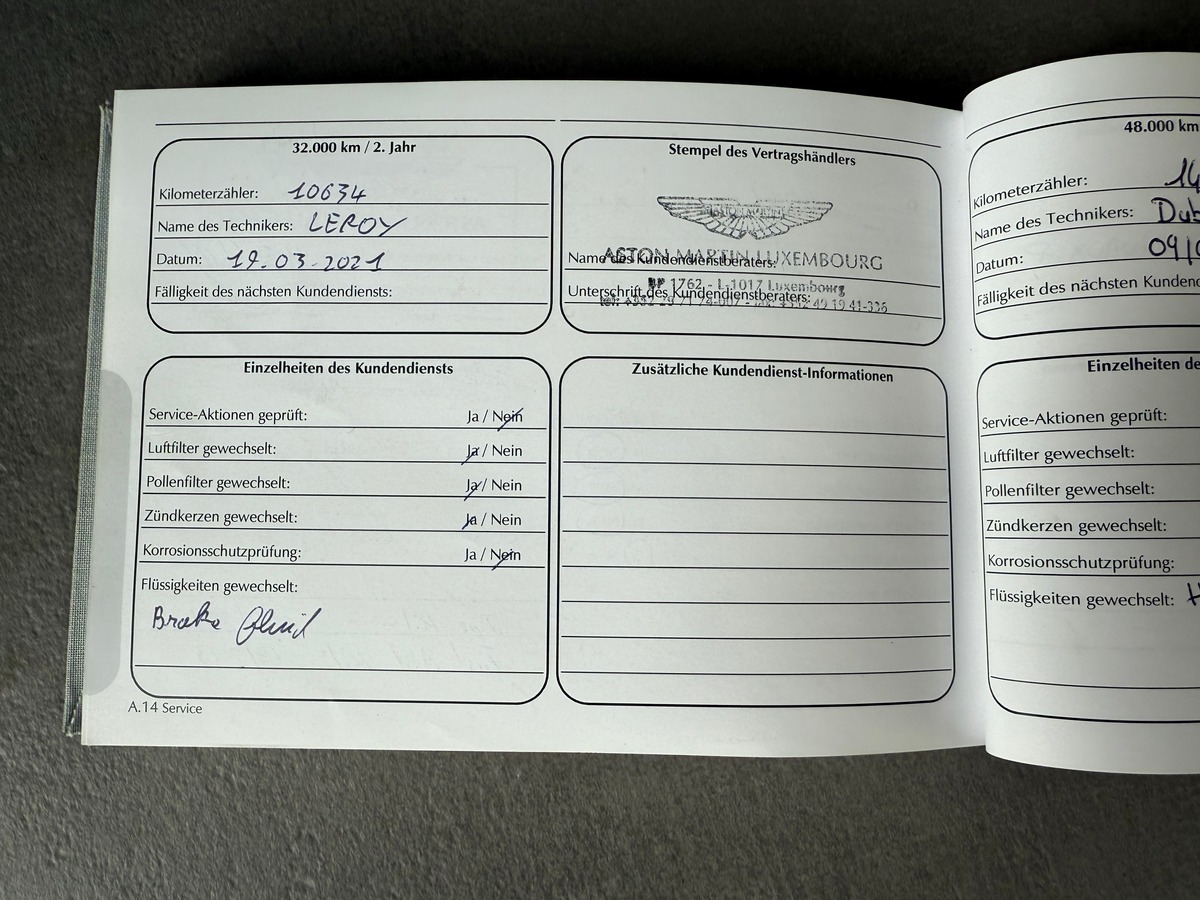 32.000 km / 2. Jahr
Kilometerzähler: 10634
Name des Technikers: LEROY
Datum: 19.03-2021
Fälligkeit des nächsten Kundendiensts:
Stempel des Vertragshändlers
ASTON MARTIN
ASTON MARTIN LUXEMBOURG
Name des Kundendienstberaters:
BP 1762 - L-1017 Luxembourg
Unterschrift des Kundendienstberaters:
Einzelheiten des Kundendiensts
Service-Aktionen geprüft: Ja / Nein
Luftfilter gewechselt: Ja / Nein
Pollenfilter gewechselt: Ja / Nein
Zündkerzen gewechselt: Ja / Nein
Korrosionsschutzprüfung: Ja / Nein
Flüssigkeiten gewechselt:
Brake fluid
Zusätzliche Kundendienst-Informationen
A.14 Service
48.000 km
Kilometerzähler: 14
Name des Technikers: Dub
Datum: 09/0
Fälligkeit des nächsten Kundend
Einzelheiten de
Service-Aktionen geprüft:
Luftfilter gewechselt:
Pollenfilter gewechselt:
Zündkerzen gewechselt:
Korrosionsschutzprüfung:
Flüssigkeiten gewechselt: